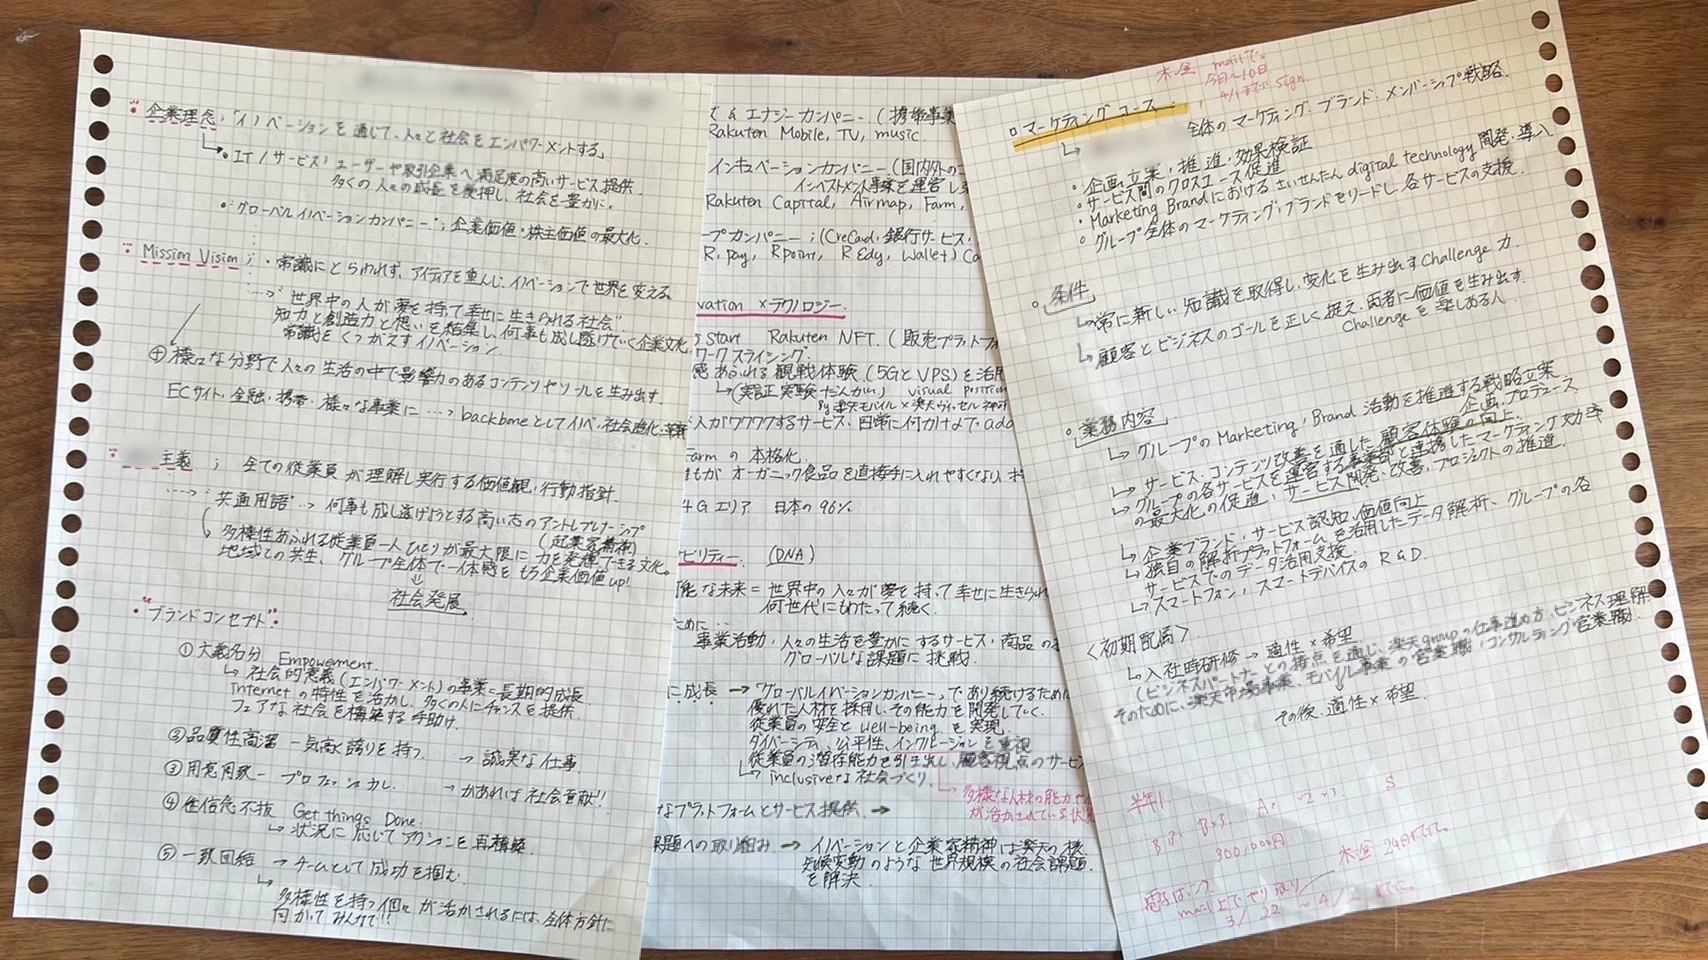 企業理念;「イノベーションを通じて、人々と社会をエンパワーメントする」
ITノサービス; ユーザーや取引企業へ満足度の高いサービス提供
多くの人々の成長を後押し、社会を豊かに。
"グローバルイノベーションカンパニー"; 企業価値・株主価値の最大化.
Mission Vision; ・常識にとらわれず、アイディアを重んじ、イノベーションで世界を変える。
"世界中の人が夢を持って幸せに生きられる社会"
知力と創造力と想いを結集し、何事も成し遂げていく企業文化
常識をくつがえすイノベーション
様々な分野で人々の生活の中で影響力のあるコンテンツやツールを生み出す.
ECサイト、金融、携帯、様々な事業に … backboneとしてイノベ、社会進化、革新
主義 ; 全ての従業員が理解し実行する価値観・行動指針.
"共通用語" … 何事も成し遂げようとする高い志のアントレプレナーシップ
(起業家精神)
多様性あふれる従業員一人ひとりが最大限に力を発揮できる文化。
地域との共生、グループ全体で一体感をもち企業価値up!
社会発展
"ブランドコンセプト"
① 大義名分 Empowerment.
社会的意義(エンパワーメント)の事業=長期的成長
Internetの特性を活かし、多くの人にチャンスを提供
フェアな社会を構築する手助け.
② 品質性高潔 - 気高く誇りを持つ. → 誠実な仕事.
③ 用意周致 - プロフェッショナル. →
④ 信念不抜 Get things Done.
状況に応じてアクションを再構築.
⑤ 一致団結 → チームとして成功を掴む.
多様性を持つ個々が活かされるには、全体方針に
向かってみんなで!!
& エナジーカンパニー (携帯事業
Rakuten Mobile, TV, music.
インキュベーションカンパニー (国内外の
インベストメント事業を運営し
Rakuten Capital, Airmap, Farm,
ープカンパニー;(CreCard・銀行サービス・
R. pay, R point, R Edy, Wallet)
vation ×テクノロジー
start Rakuten NFT. (販売プラットフォ
ワークスライシング.
感あふれる観戦体験 (5GとVPS)を活用
visual position
by 楽天モバイル×楽天ヴィッセル神戸
人がワクワクするサービス、日常に
Farm の 本格化.
もが オーガニック食品を直接手に入れやすく
4Gエリア 日本の96%
ビリティー (DNA)
能な未来= 世界中の人々が夢を持って幸せに生きられ
何世代にもわたって続く.
ために…
事業活動、人々の生活を豊かにするサービス・商品の
グローバルな課題に挑戦.
に成長 → 「グローバルイノベーションカンパニー」であり続けるために
優れた人材を採用し、その能力を開発していく.
従業員の安全とwell-beingを実現.
ダイバーシティ、公平性、インクルージョンを重視
従業員の潜在能力を引き出し、顧客視点のサービス
inclusiveな社会づくり
多様な人材の能力
が活かされている状
なプラットフォームとサービス提供 →
課題への取り組み → イノベーションと企業家精神は楽天の核.
気候変動のような世界規模の社会課題
を解決.
木金 mailで
今日〜10日
4/1までに sign
マーケティングコース
全体のマーケティング・ブランド・メンバーシップ戦略.
・企画立案、推進、効果検証
・サービス間のクロスユース促進
・Marketing Brandにおけるさいせんたんdigital technology開発・導入
・グループ全体のマーケティング・ブランドをリードし、各サービスの支援.
条件
常に新しい知識を取得し、変化を生み出すChallenge力.
顧客とビジネスのゴールを正しく捉え、両者に価値を生み出す.
Challengeを楽しめる人
業務内容
グループのMarketing, Brand活動を推進する戦略立案
サービス、コンテンツ改善を通した顧客体験の向上. 企画、プロデュース
グループの各サービスを運営する事業部と連携したマーケティング効率
の最大化の促進、サービス開発、改善、プロジェクトの推進
企業ブランド・サービス認知、価値向上
独自の解析プラットフォームを活用したデータ解析、グループの各
サービスでのデータ活用支援.
スマートフォン, スマートデバイスのR&D.
<初期配属>
入社時研修 → 適性×希望
(ビジネスパートナーとの接点を通じ、楽天groupの仕事進め方、ビジネス理解
そのために、楽天市場事業、モバイル事業の営業職/コンサルティング営業職.
その後. 適性×希望.
半年1
300,000円
木金 24日までに.
mail上でやり取り
3/22 〜 4/2 までに.